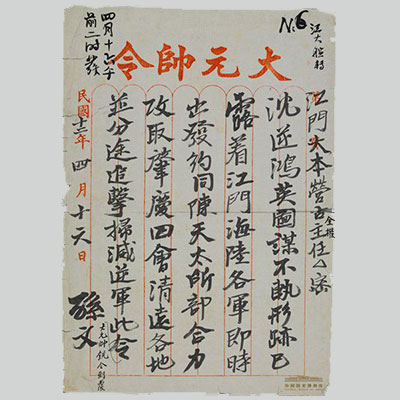 No.6
大元帥令
江門大本營古主任
沈逆鴻英圖謀不軌形跡已
露着江門海陸各軍即時
出發約同陳天太所部合力
攻取肇慶四會清遠各地
並分途追擊掃滅逆軍此令
孫文
民國十二年四月十六日
四月十七午
前二時發